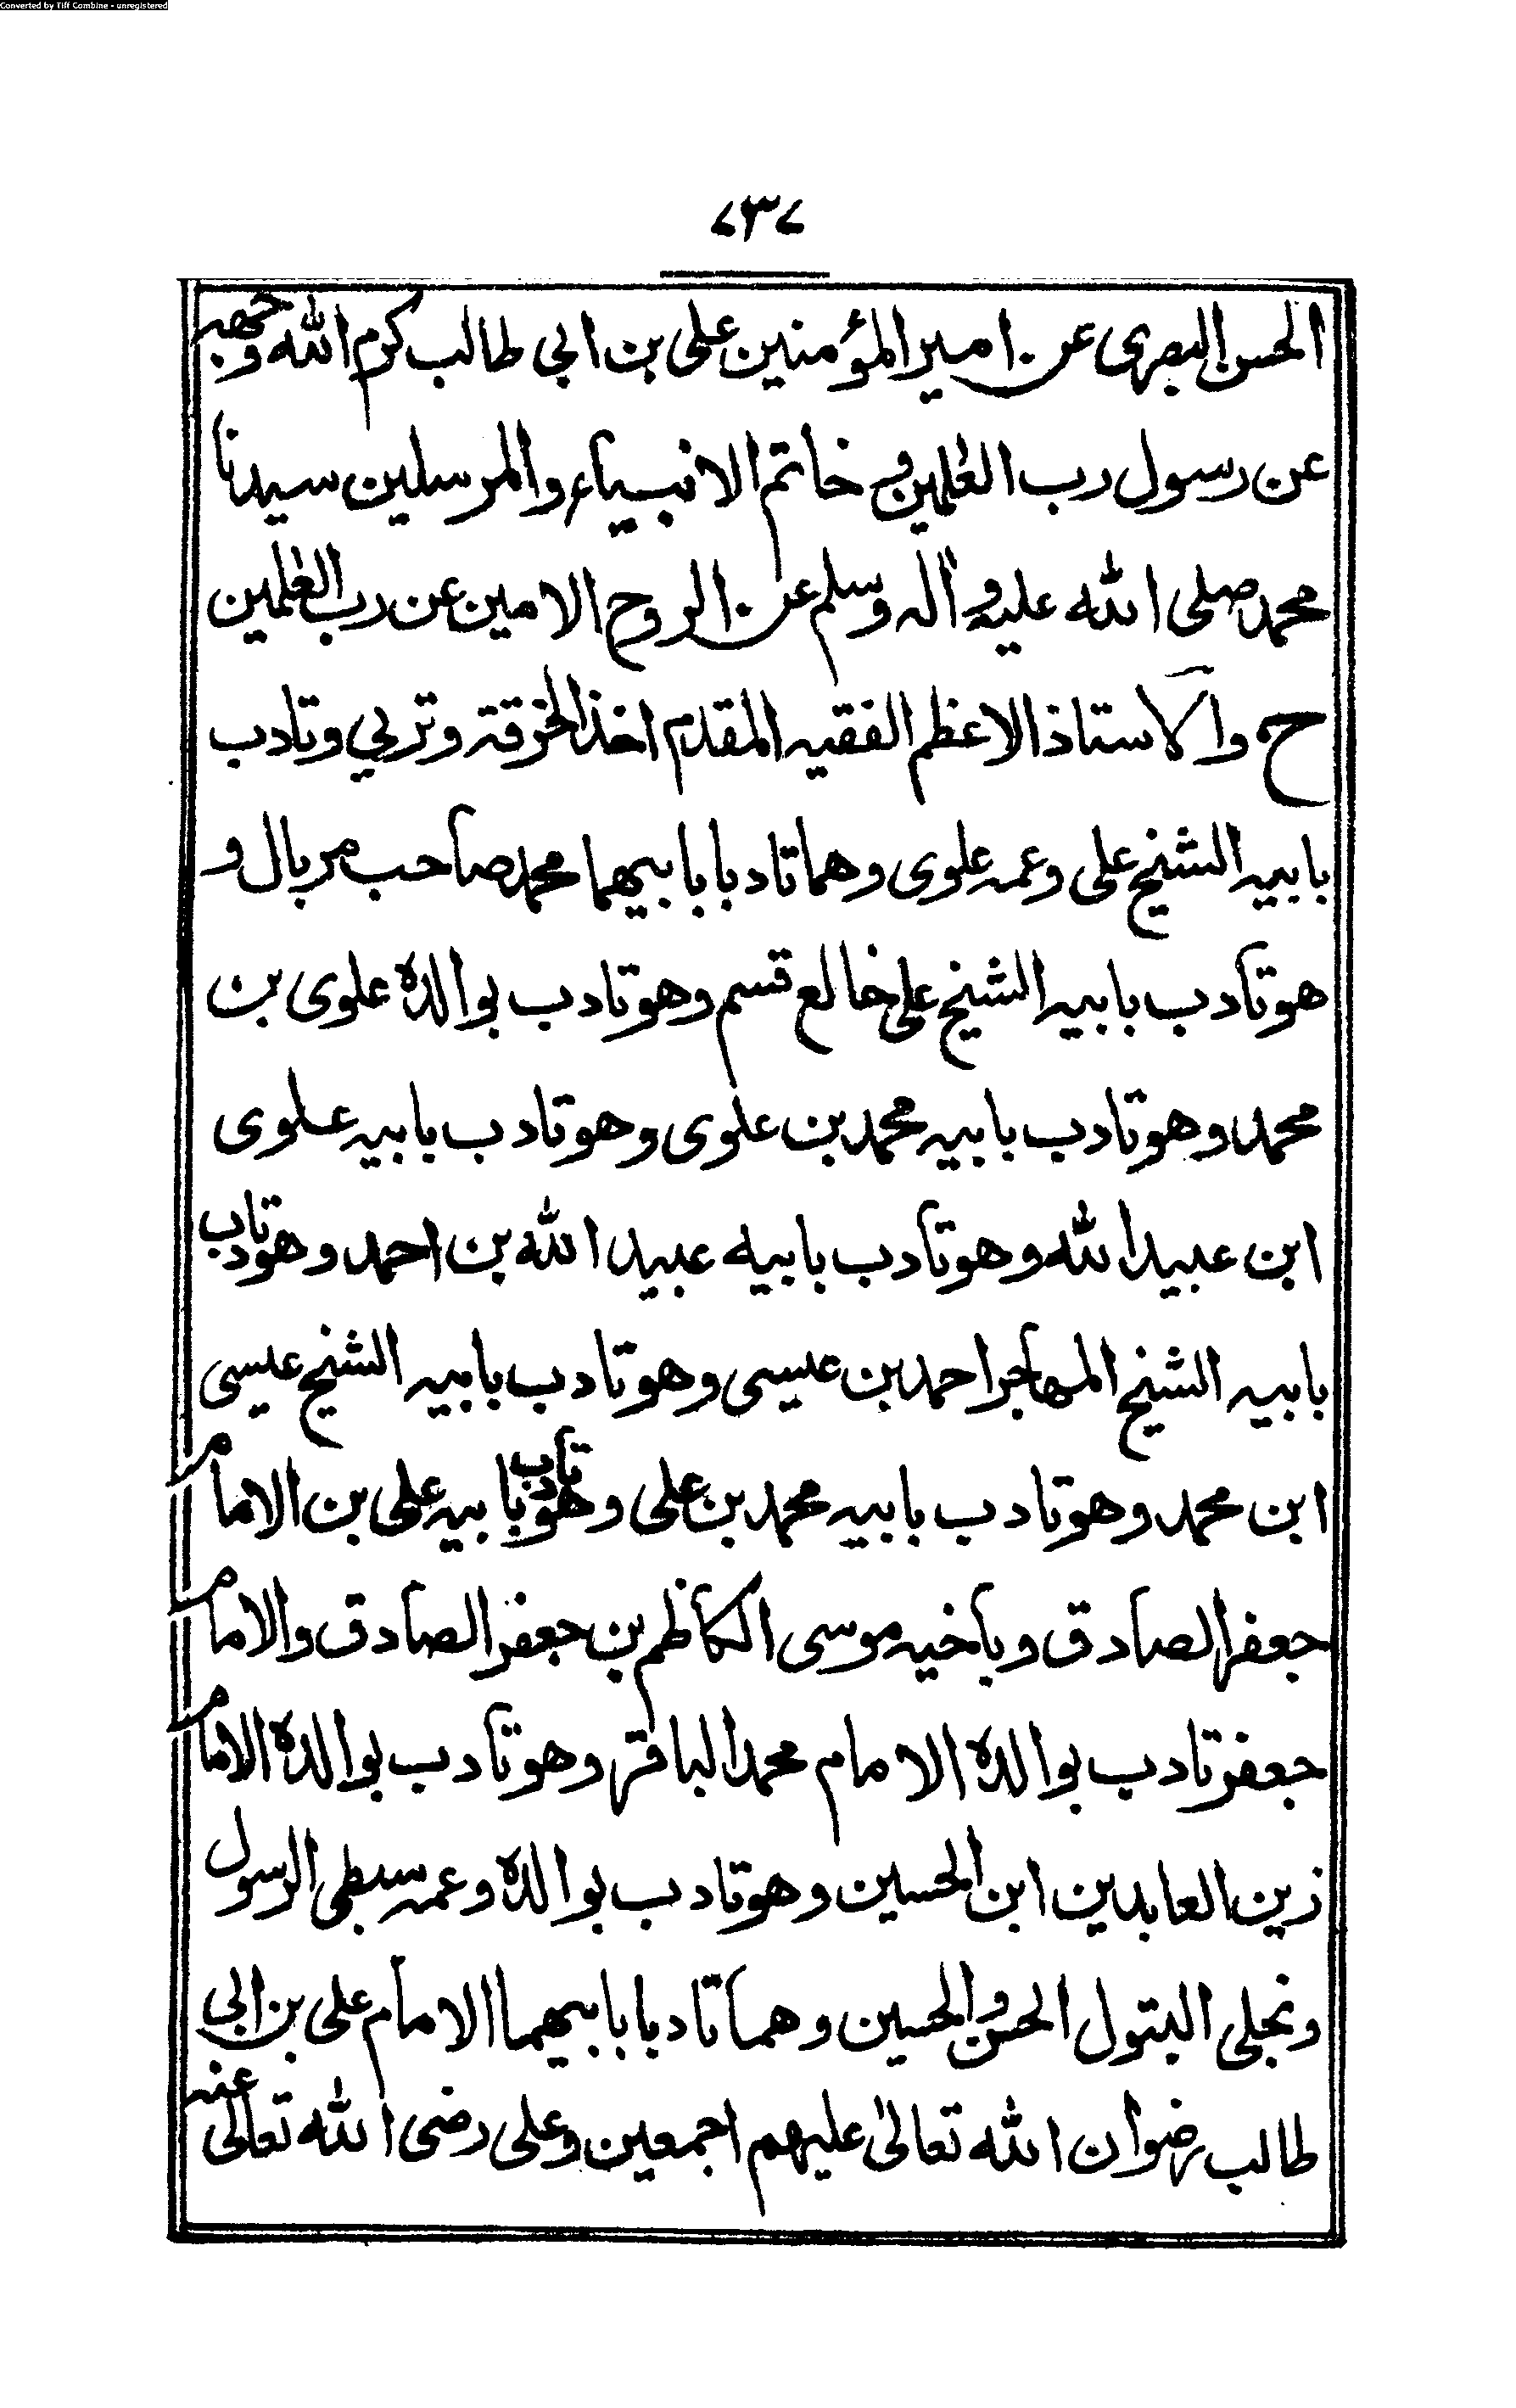 Converted by Tiff Combine - unregistered
٧٣٧
الحسن البصرى عن امير المؤمنين على بن ابي طالب كرم الله وجهه
عن رسول رب العٰلمين و خاتم الانبياء والمرسلين سيدنا
محمد صلى الله عليه و اله وسلم عن الروح الامين عن رب العٰلمين
ح والاستاذ الاعظم الفقيه المقدم اخذ الخرقة وتربي وتادب
بابيه الشيخ على وعمه علوى وهما تادبا بابيهما محمد صاحب مربال و
هو تادب بابيه الشيخ على خالع قسم وهو تادب بوالده علوى بن
محمد وهو تادب بابيه محمد بن علوى وهو تادب بابيه علوى
ابن عبيد الله وهو تادب بابيه عبيد الله بن احمد وهو تادب
بابيه الشيخ المهاجر احمد بن عيسى وهو تادب بابيه الشيخ عيسى
ابن محمد وهو تادب بابيه محمد بن على وهو تادب بابيه على بن الامام
جعفر الصادق وباخيه موسى الكاظم بن جعفر الصادق والامام
جعفر تادب بوالده الامام محمد الباقر وهو تادب بوالده الامام
زين العابدين ابن الحسين وهو تادب بوالده وعمه سبطى الرسول
ونجلى البتول الحسن والحسين وهما تادبا بابيهما الامام على بن ابى
طالب رضوان الله تعالىٰ عليهم اجمعين وعلى رضى الله تعالى عنه